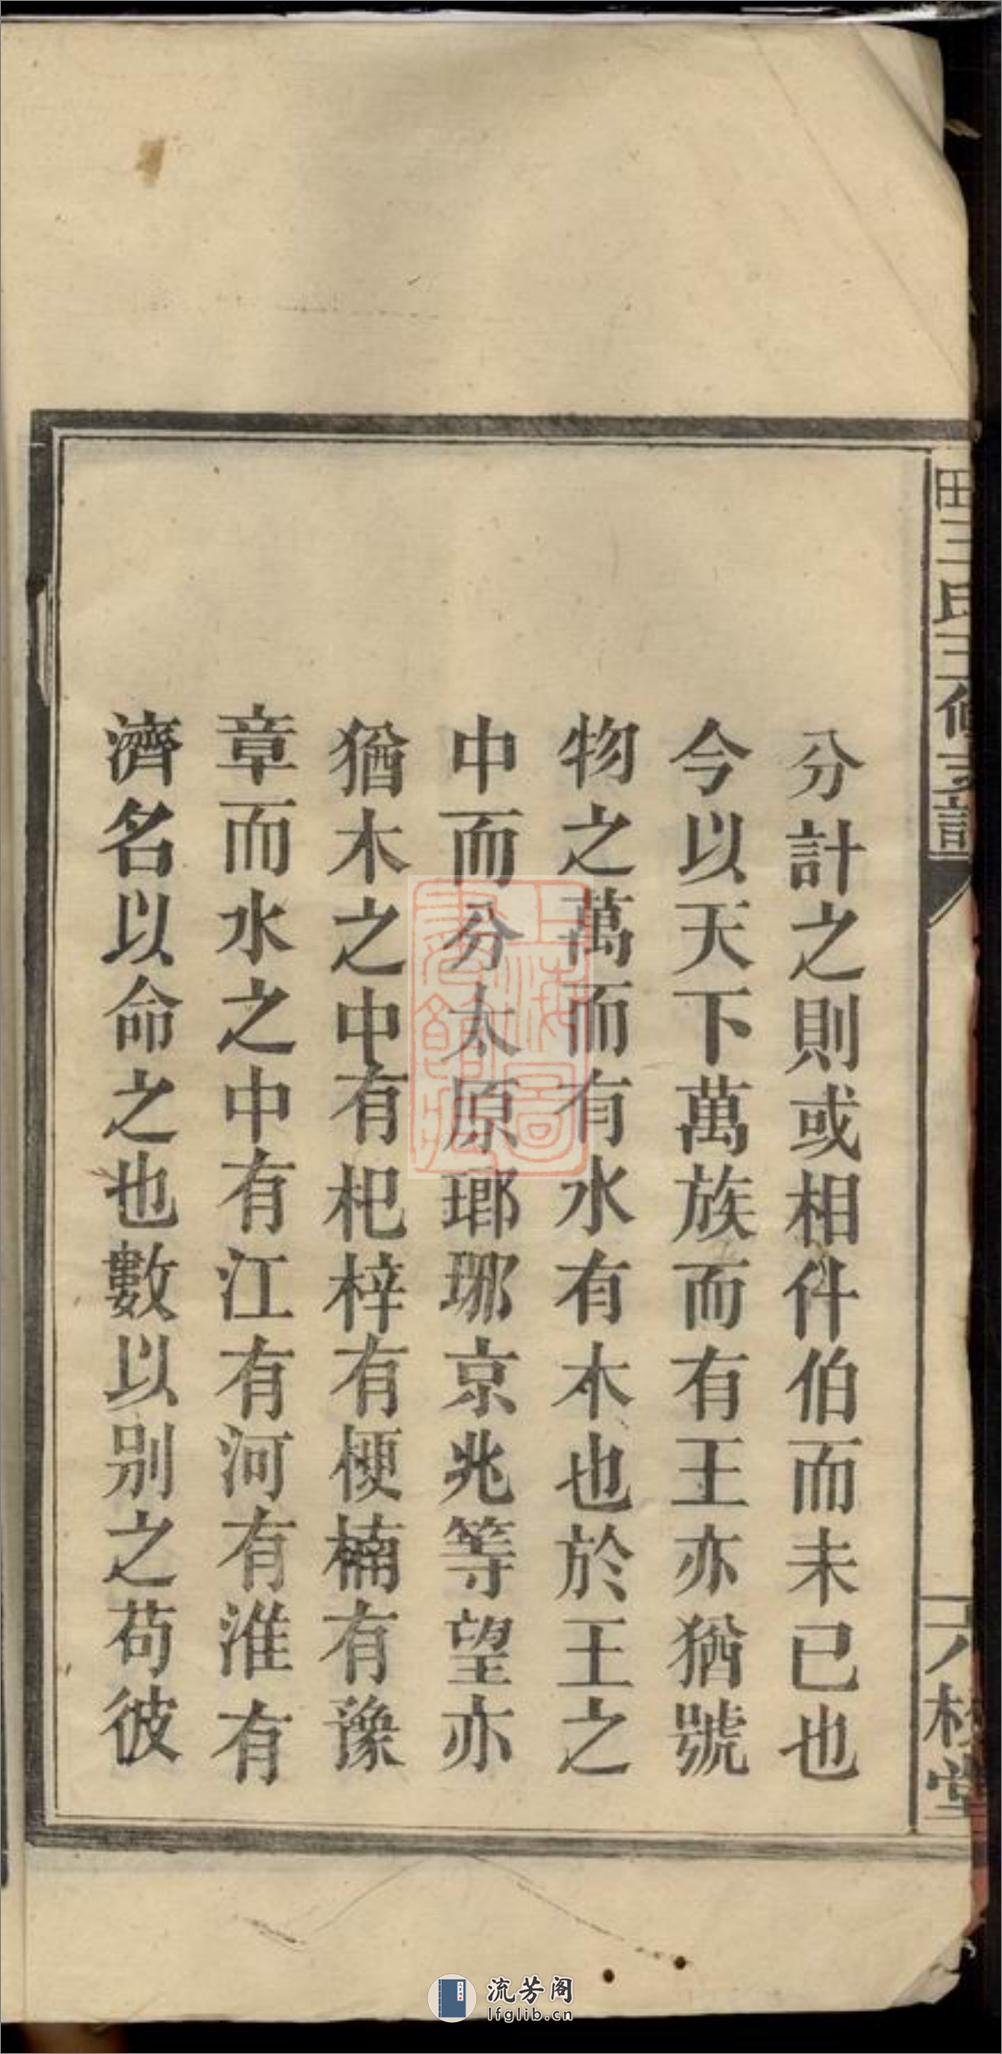 田王氏三修支譜
分計之則或相什伯而未已也
今以天下萬族而有王亦猶號
物之萬而有水有木也於王之
中而分太原瑯琊京兆等望亦
猶木之中有杞梓有梗楠有豫
章而水之中有江有河有淮有
濟名以命之也數以別之苟彼
槐堂
上海圖書館藏
流芳阁
lfglib.cn